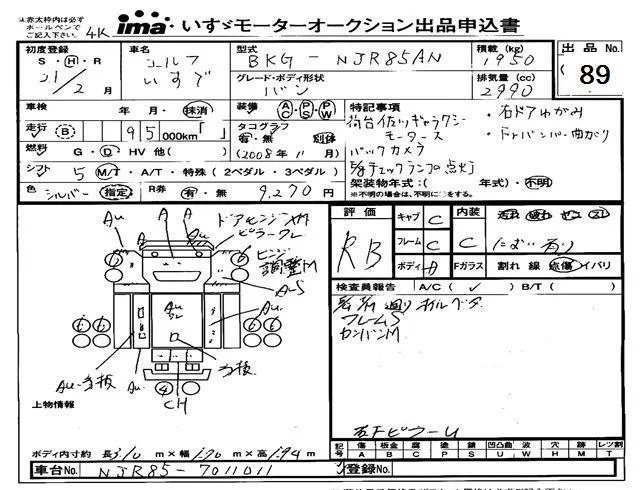 ※赤太枠内は必ず
ボールペンで
ご記入下さい。
4K
ima いすゞモーターオークション出品申込書
初度登録
S・H・R
21/2 月
車名
エルフ
いすゞ
型式
BKG - NJR85AN
グレード・ボディ形状
バン
積載 (kg)
1950
排気量 (cc)
2990
出品No.
89
車検 年・月・抹消
走行 B 95000km
燃料 G・D HV 他( )
シフト 5 M/T・A/T・特殊(2ペダル・3ペダル)
色 シルバー 指定
R券 有・無 9,270円
装備 AC PS PW
タコグラフ
有・無 別体
(2008年11月)
特記事項
荷台佐川ギャラクシー
モータース
バックカメラ
チェックランプ点灯
・右ドアゆがみ
・Fバンパー曲がり
架装物年式:( 年式)・不明
※不明の場合は、不明に○をする。
評価
RB
キャブ C
フレーム C
ボディ A
内装 C
Fガラス
汚れ 破れ コゲ スレ
におい有り
割れ 線 点傷 イバリ
検査員報告 A/C( ✓ ) B/T( )
フレームS
カンバンM
右Fピラー U
Au
A
A
A
ドアヒンジ
ピラーズレ
ヒンジ
調整M
Au-S
Au
Au
Au-当板
Au
当板
CH
上物情報
ボディ内寸約 長3.10 m×幅1.70 m×高1.94 m
記号 傷 板金 腐 塗 錆 凹凸曲 波 穴 跡 レツ割
A B C P S U W H M T
車台No. NJR85-7011011
登録No.